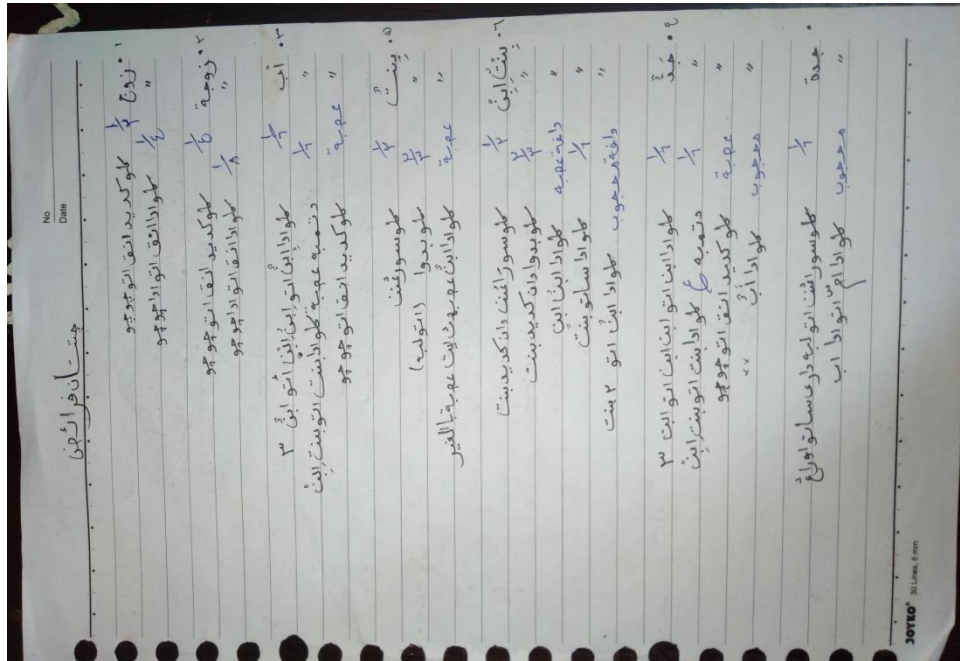 No
Date
چتتان فرائض
٠١ زوج ١/٢ كلو كديد انق اتو چوچو
〃 ١/٤ كلو ادا انق اتو ادا چوچو
٠٢ زوجة ١/٤ كلو كديد انق اتو چوچو
〃 ١/٨ كلو ادا انق اتو ادا چوچو
٠٣ اب ١/٦ كلو ادا ابن اتو ابن ابن اتو ابن ٣
〃 ١/٦ دتمبه عصبة كلو ادا بنت اتو بنت ابن
〃 عصبة كلو كديد انق اتو چوچو
٠٥ بنت ١/٢ كلو سوراغن
〃 ٢/٣ كلو بدوا (اتو لبه)
〃 عصبة كلو ادا ابن عصبهث يئت عصبة بالغير
٠٦ بنت ابن ١/٢ كلو سوراغن دان كديد بنت
〃 ٢/٣ كلو بدوا دان كديد بنت
〃 عصبة كلو ادا ابن ابن
〃 ١/٦ كلو ادا ساتو بنت
〃 محجوب كلو ادا ابن اتو ٢ بنت
٠٩ جد ١/٦ كلو ادا ابن اتو ابن ابن اتو ابن ٣
〃 ١/٦ دتمبه ع كلو ادا بنت اتو بنت ابن
〃 عصبة كلو كديد انق اتو چوچو
〃 محجوب كلو ادا أب
٠ جدة ١/٦ كلو سوراغن اتو لبه داري ساتو اوراغ
〃 محجوب كلو ادا ام اتو ادا اب
JOYKO® 30 Lines, 8 mm